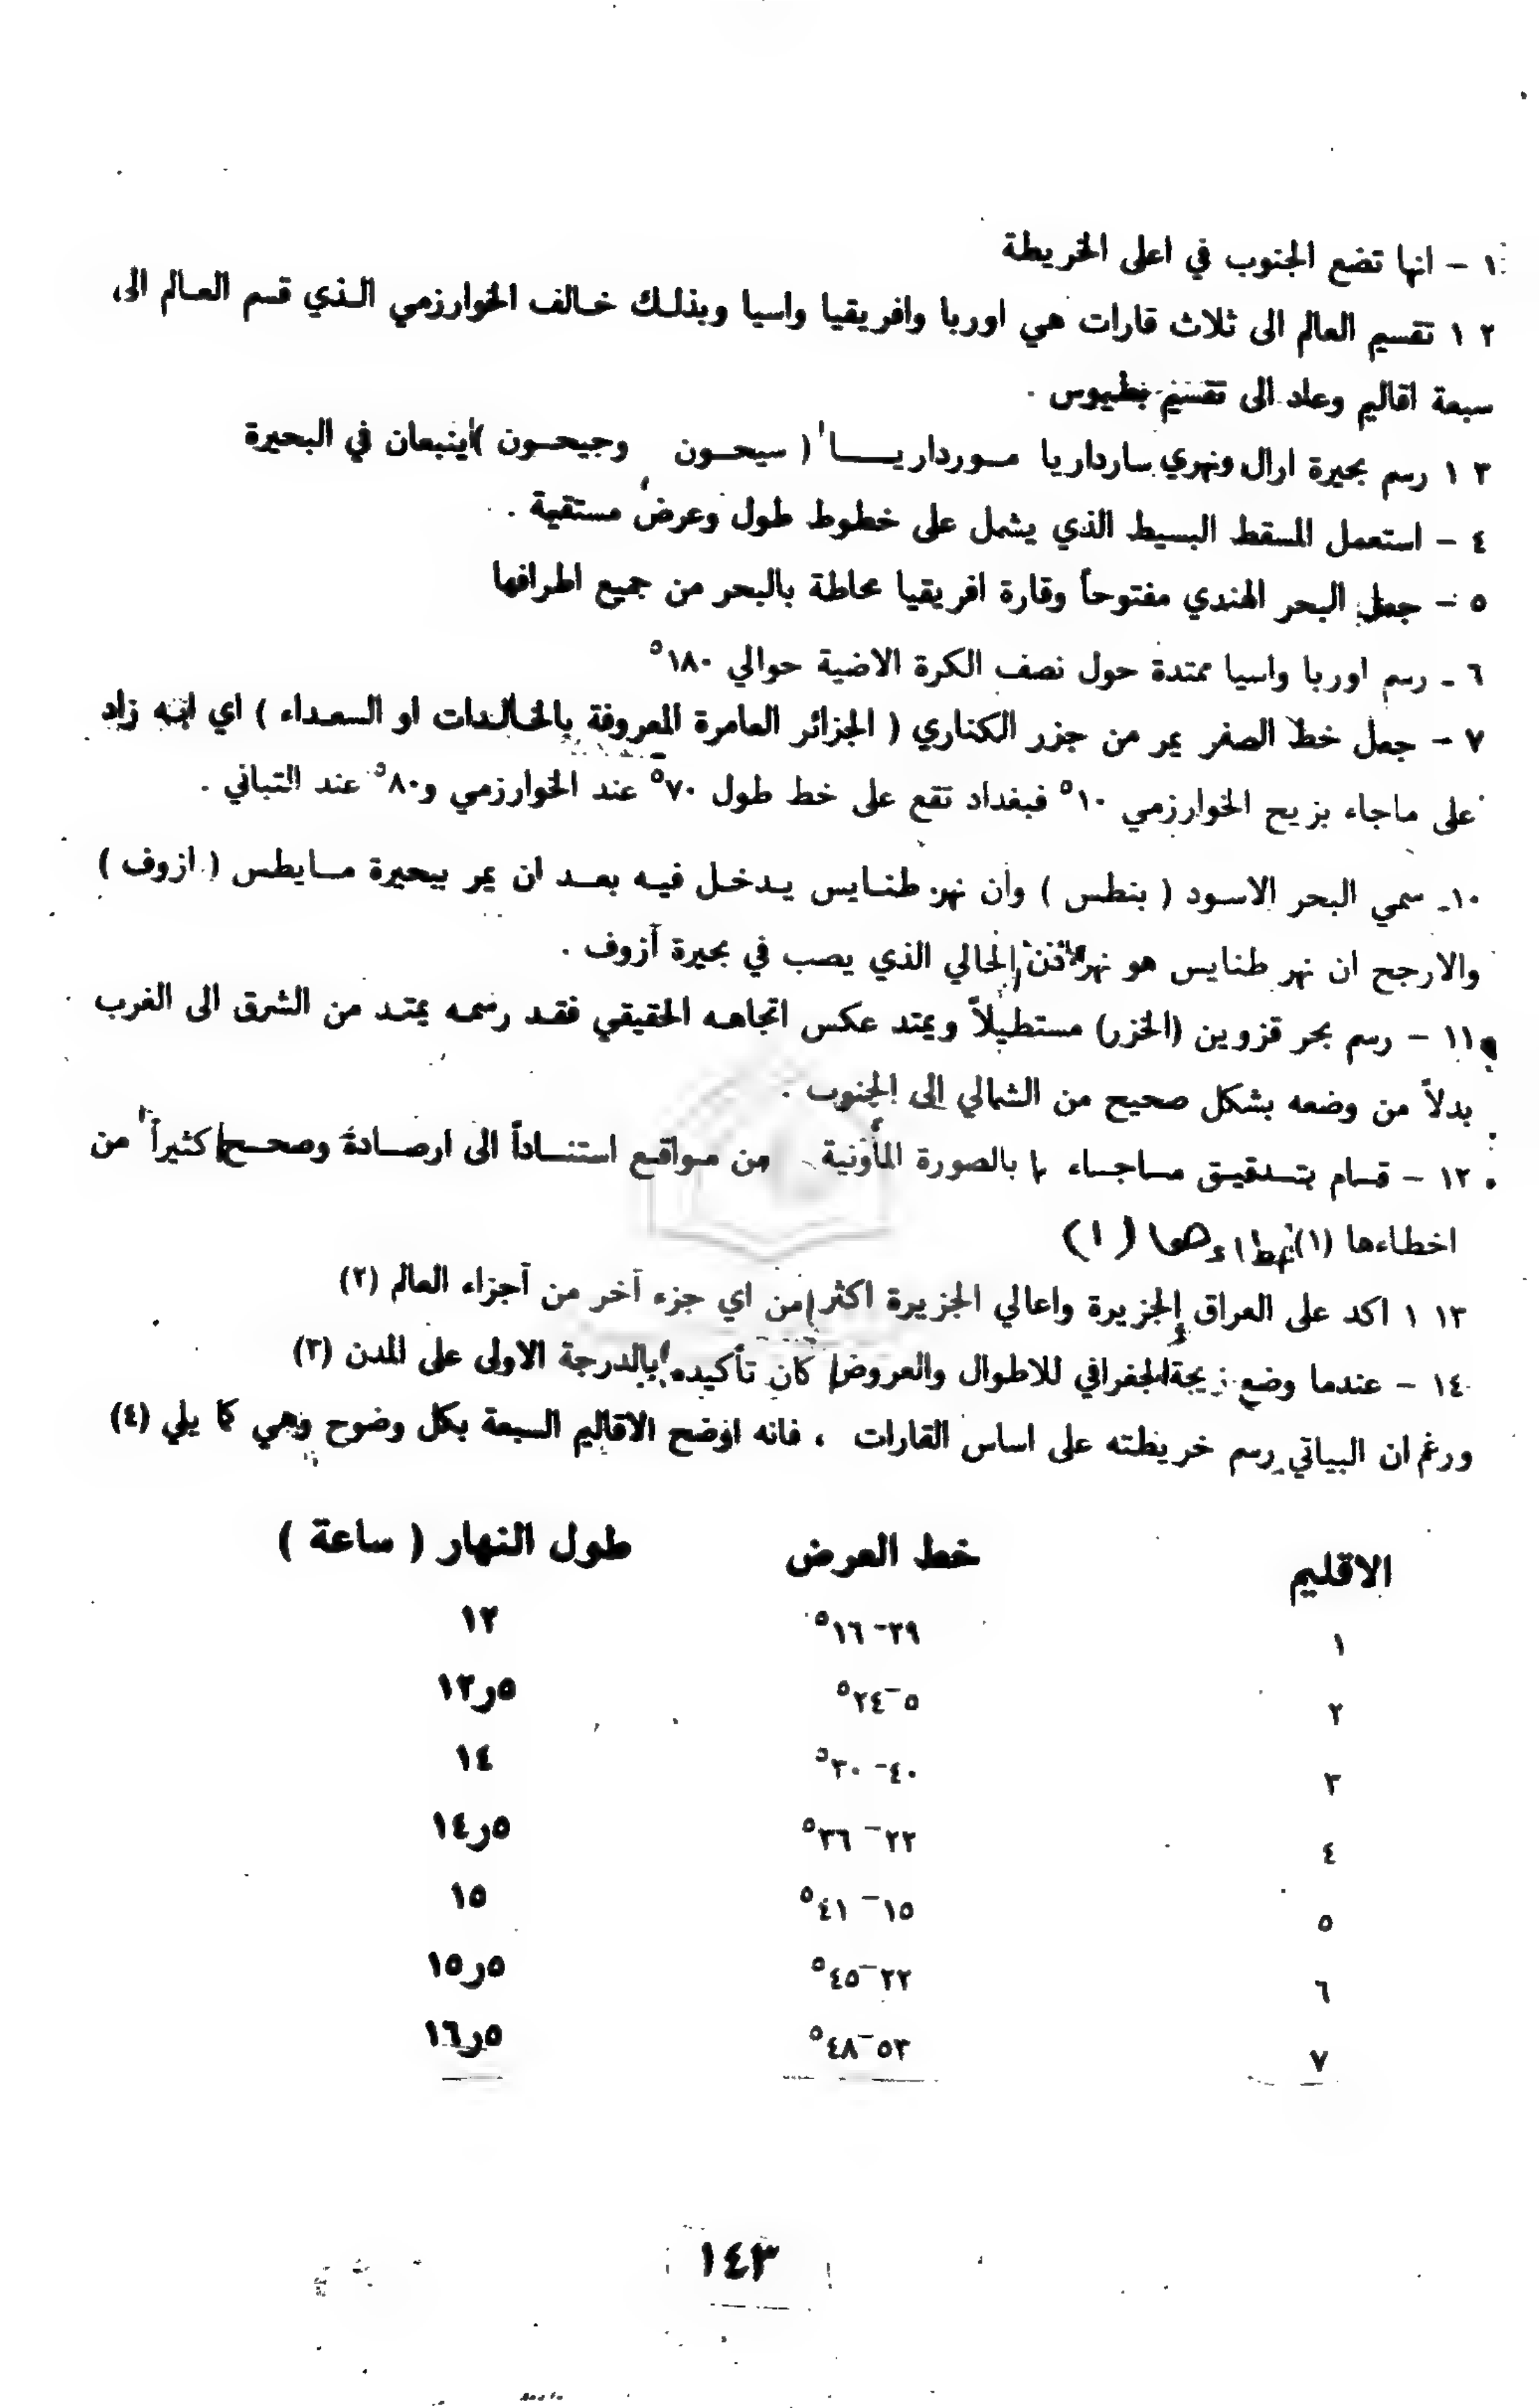 ١ - انها تضع الجنوب في اعلى الخريطة
٢ ١ تقسيم العالم الى ثلاث قارات هي اوربا وافريقيا واسيا وبذلك خالف الخوارزمي الذي قسم العالم الى
سبعة اقاليم وعاد الى تقسيم بطيوس .
٣ ١ رسم بحيرة ارال ونهري سارداريا موورداريا ( سيحون وجيحون ) ينبعان في البحيرة
٤ - استعمل المسقط البسيط الذي يشمل على خطوط طول وعرض مستقية .
٥ - جعل البحر الهندي مفتوحاً وقارة افريقيا محاطة بالبحر من جميع اطرافها
٦ - رسم اوربا واسيا ممتدة حول نصف الكرة الاضية حوالي ١٨٠°
٧ - جعل خط الصفر يمر من جزر الكناري ( الجزائر العامرة المعروفة بالخالدات او السعداء ) اي انه زاد
على ماجاء بزيح الخوارزمي ١٠° فبغداد تقع على خط طول ٧٠° عند الخوارزمي و٨٠° عند التباني .
١٠ـ سمي البحر الاسود ( بنطس ) وأن نهر طنايس يدخل فيه بعد ان يمر ببحيرة مايطس ( ازوف )
والارجح ان نهر طنايس هو نهر الحالي الذي يصب في بحيرة آزوف .
١١ - رسم بحر قزوين (الخزر) مستطيلاً ويمتد عكس اتجاهه الحقيقي فقد رسمه يمتد من الشرق الى الغرب
بدلاً من وضعه بشكل صحيح من الشمالي إلى الجنوب .
١٢ - قام بتدقيق ماجاء بالصورة المأونية من مواقع استناداً الى ارصادة وصحح كثيراً من
اخطاءها (١) (١)
١٣ ١ اكد على العراق الجزيرة واعالي الجزيرة اكثر من اي جزء آخر من آجزاء العالم (٢)
١٤ - عندما وضع زيجة الجغرافي للاطوال والعروض كان تأكيده بالدرجة الاولى على المدن (٣)
ورغم ان البياتي رسم خريطته على اساس القارات ، فانه اوضح الاقاليم السبعة بكل وضوح وهي كا يلي (٤)
الاقليم خط العرض طول النهار ( ساعة )
١ ٣٩- ١٦° ١٣
٢ ٥-٢٤° ٥ر١٣
٣ ٤٠- ٣٠° ١٤
٤ ٢٢- ٣٦° ٥ر١٤
٥ ١٥- ٤١° ١٥
٦ ٢٢-٤٥° ٥ر١٥
٧ ٥٣-٤٨° ٥ر١٦
١٤٣